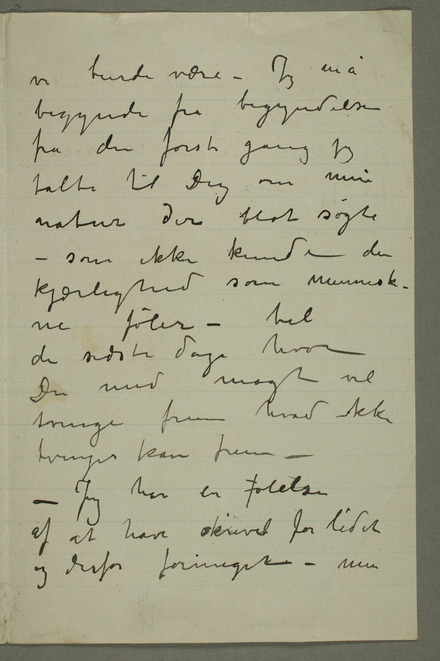 vi burde være – Jeg må
begynde fra begyndelsen
fra den første gang jeg
talte til Dig om min
natur der blot søgte
– som ikke kunde den
kjærlighed som menneske-
ne føler – til
de sidste dage hvor
Du med magt vil
tvinge frem hvad ikke
tvinges kan frem –
– Jeg har en Følelse
af at have skrivet for lidet
og derfor formeget – men